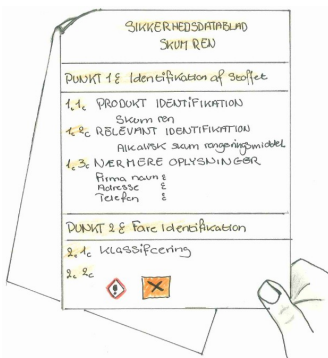 SIKKERHEDSDATABLAD
SKUM REN
PUNKT 1: Identifikation af Stoffet
1.1. PRODUKT IDENTIFIKATION
Skum ren
1.2. RELEVANT IDENTIFIKATION
Alkalisk skum rengøringsmiddel
1.3. NÆRMERE OPLYSNINGER
Firma navn :
Adresse :
Telefon :
PUNKT 2: Fare Identifikation
2.1. Klassifcering
2.2.